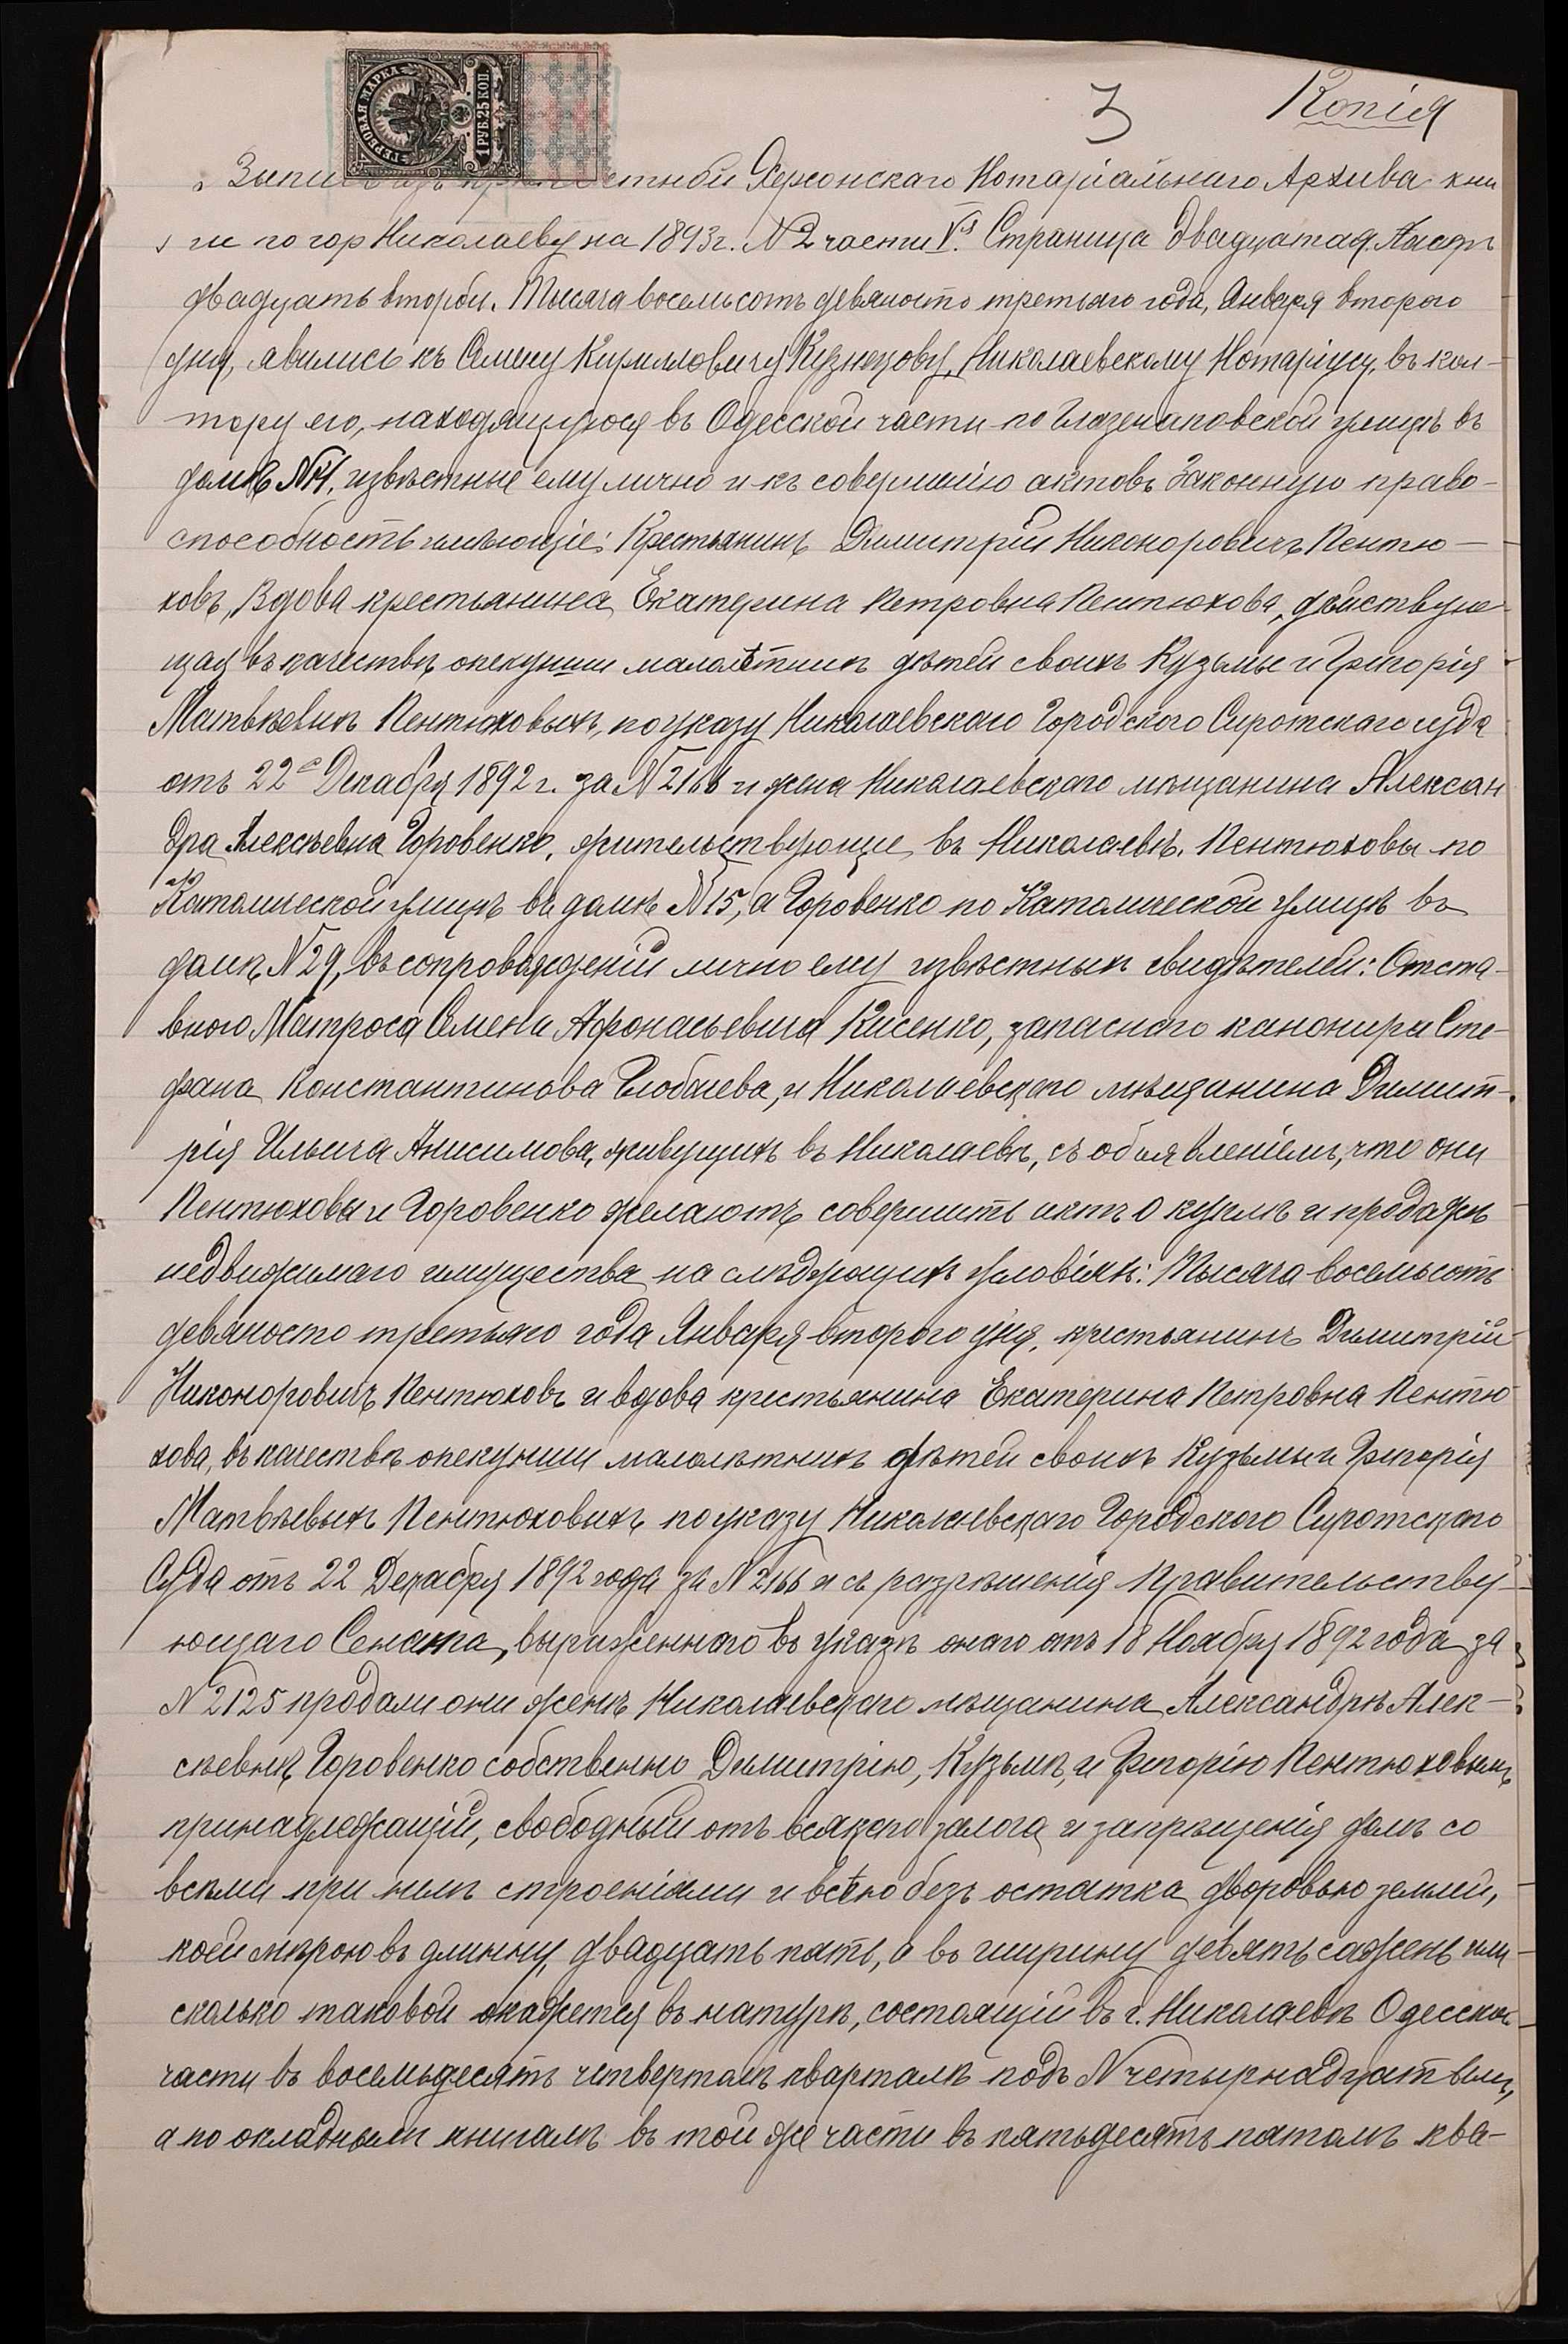 3 Копія
ГЕРБОВАЯ МАРКА 1 РУБ. 25 КОП.
Херсонскаго Нотаріальнаго Архива кни
ги по гор Николаеву на 1893 г. N 2 части V. Страница двадцатая. Актъ
двадцать второй. Тысяча восемьсотъ девяносто третьяго года, Января второго
дня, явились къ Семену Кирилловичу Кузнецову, Николаевскому Нотаріусу, въ кон-
тору его, находящуюся въ Одесской части по Глазенаповской улицѣ въ
домѣ извѣстные ему лично и къ совершенію актовъ законную право-
способность имѣющіе: Крестьянинъ Димитрій Никоноровичъ Пентю-
ховъ, Вдова крестьянина Екатерина Петровна Пентюхова, дѣйствую-
щая въ качествѣ опекунши малолѣтнихъ дѣтей своихъ Кузьмы и Григорія
Матвѣевыхъ Пентюховыхъ, по указу Николаевскаго Городского Сиротскаго суда
отъ 22го Декабря 1892 г. за N 2166 и жена Николаевскаго мѣщанина Алексан
дра Алексѣевна Горовенко, жительствующіе въ Николаевѣ, Пентюховы по
Католической улицѣ въ домѣ N 15, а Горовенко по Католической улицѣ въ
домѣ N 29, въ сопровожденіи лично ему извѣстныхъ свидѣтелей: Отста-
вного Матроса Семена Афонасьевича Кисенко, запаснаго канонира Сте-
фана Константинова и Николаевскаго мѣщанина Димит-
рія Ильича Анисимова, живущихъ въ Николаевѣ, съ объявленіемъ, что они
Пентюховы и Горовенко желаютъ совершить актъ о куплѣ и продажѣ
недвижимаго имущества на слѣдующихъ условіяхъ: Тысяча восемьсотъ
девяносто третьяго года Января второго дня, крестьянинъ Димитрій
Никоноровичъ Пентюховъ и вдова крестьянина Екатерина Петровна Пентю
хова, въ качествѣ опекунши малолѣтнихъ дѣтей своихъ Кузьмы и Григорія
Матвѣевыхъ Пентюховыхъ по указу Николаевскаго Городского Сиротскаго
Суда отъ 22 Декабря 1892 года за N 2166 и съ разрѣшенія Правительству-
ющаго Сената, выраженнаго въ указѣ онаго отъ 18 Ноября 1892 года за
N 2125 продали они женѣ Николаевскаго мѣщанина Александрѣ Алек-
сѣевнѣ Горовенко собственно Димитрію, Кузьмѣ, и Григорію Пентюховымъ
принадлежащій, свободный отъ всякаго залога и запрещенія домъ со
всѣми при немъ строеніями и всѣю безъ остатка дворовою землей,
коей мѣрою въ длинну, двадцать пять, а въ ширину девять сажень или
сколько таковой окажется въ натурѣ, состоящій въ г. Николаевѣ Одесской
части въ восемьдесятъ четвертомъ кварталѣ подъ N четырнадцатымъ,
а по окладнымъ книгамъ въ той же части въ пятьдесятъ пятомъ ква-